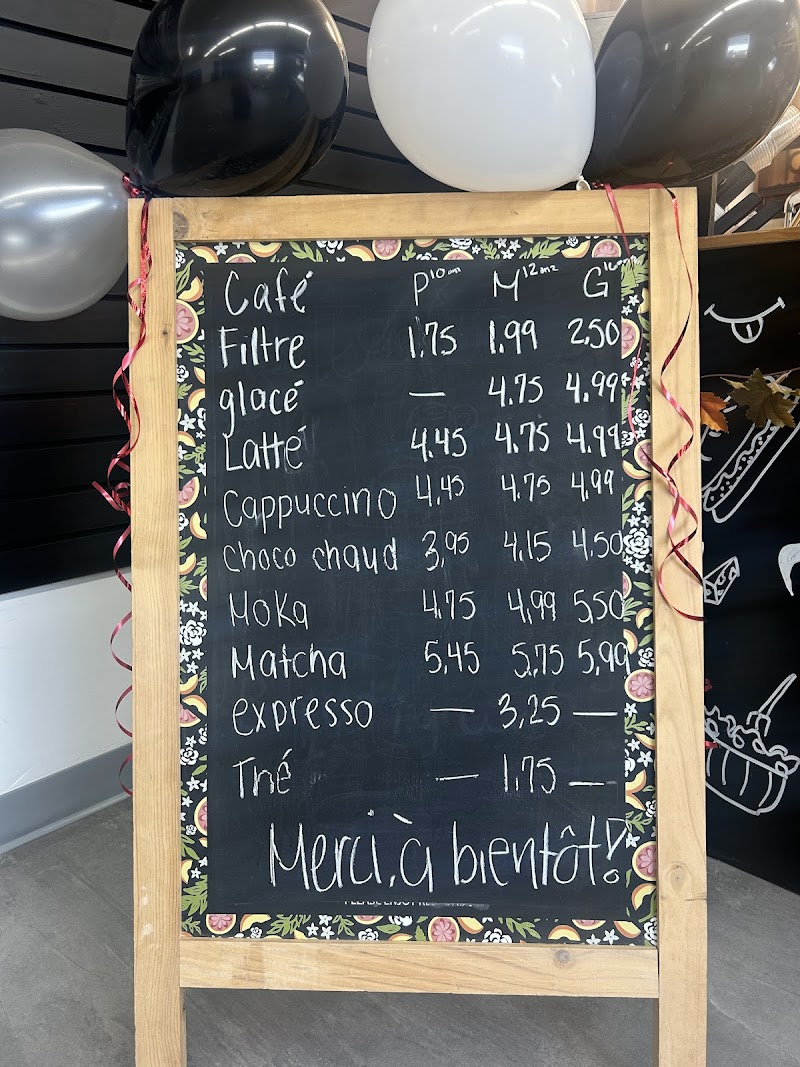 Café P 10oz M 12oz G
Filtre 1.75 1.99 2.50
glacé — 4.75 4.99
Latté 4.45 4.75 4.99
Cappuccino 4.45 4.75 4.99
choco chaud 3,95 4.15 4.50
Moka 4.75 4,99 5.50
Matcha 5,45 5.75 5,99
expresso — 3,25 —
Thé — 1.75 —
Merci, à bientôt!